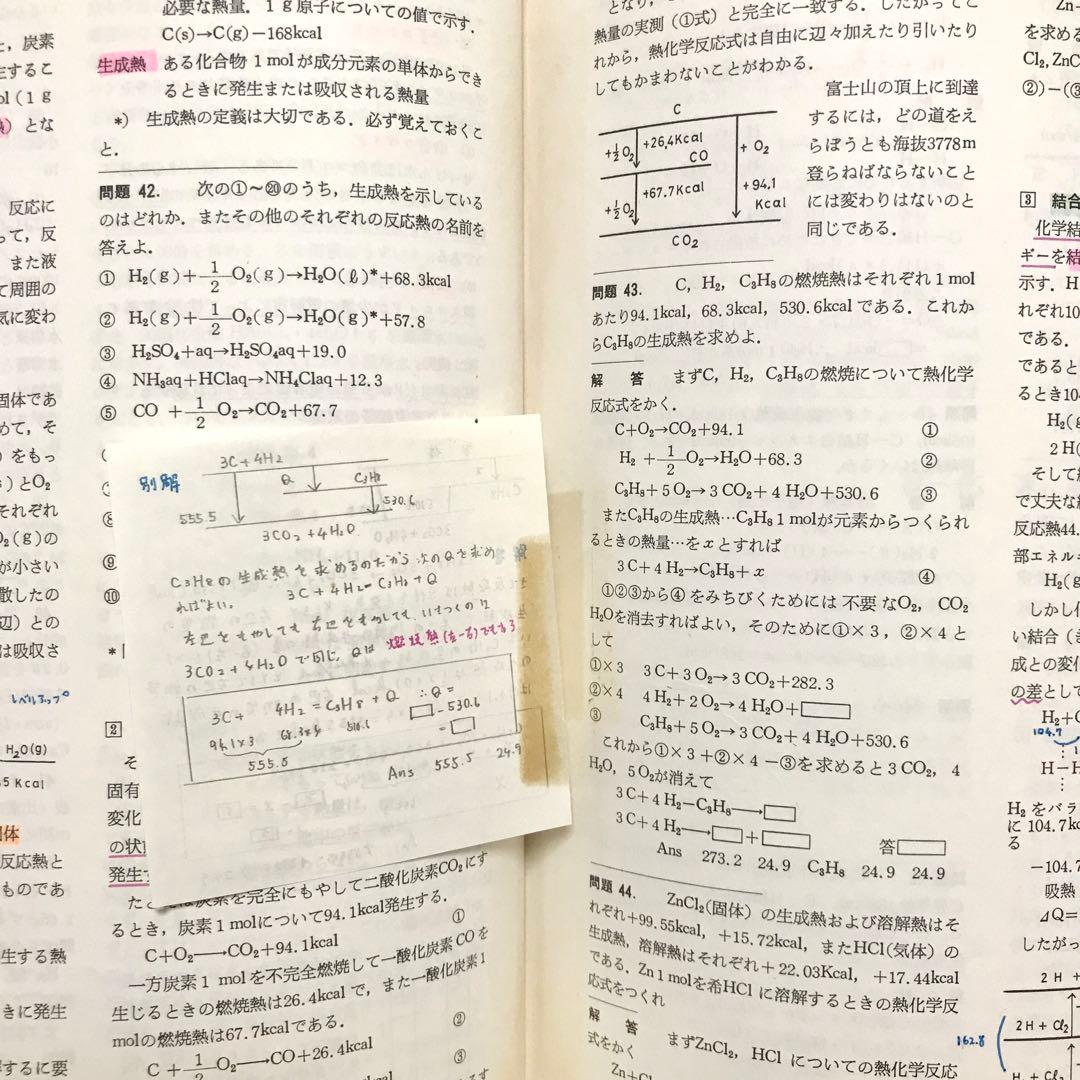 必要な熱量．1g原子についての値で示す．
C(s)→C(g)−168kcal
生成熱 ある化合物1molが成分元素の単体からでき
るときに発生または吸収される熱量
*) 生成熱の定義は大切である．必ず覚えておくこ
と．
問題 42. 次の①〜⑳のうち，生成熱を示している
のはどれか．またその他のそれぞれの反応熱の名前を
答えよ．
① H₂(g)+1/2O₂(g)→H₂O(ℓ)*+68.3kcal
② H₂(g)+1/2O₂(g)→H₂O(g)*+57.8
③ H₂SO₄+aq→H₂SO₄aq+19.0
④ NH₃aq+HClaq→NH₄Claq+12.3
⑤ CO+1/2O₂→CO₂+67.7
⑨
⑩
別解
3C+4H₂
Q C₃H₈
555.5 530.6
3CO₂+4H₂O
C₃H₈の生成熱を求めるのだから次のQを求め
ればよい． 3C+4H₂=C₃H₈+Q
左辺をもやしても右辺をもやしても
3CO₂+4H₂Oで同じ，Qは 燃焼熱(左−右)である
3C+ 4H₂=C₃H₈+Q ∴Q=
94.1×3 68.3×4 530.6 □−530.6
555.5 =□
Ans 555.5 24.9
2
そ
固有
変化
の状
発生
炭素を完全にもやして二酸化炭素CO₂にす
るとき，炭素1molについて94.1kcal発生する．
C+O₂→CO₂+94.1kcal ①
一方炭素1molを不完全燃焼して一酸化炭素COを
生じるときの燃焼熱は26.4kcalで，また一酸化炭素1
molの燃焼熱は67.7kcalである．
C+1/2O₂→CO+26.4kcal ②
③
，炭素
生するこ
ol(1g
とな
反応に
って，反
また液
て周囲の
気に変わ
固体であ
めて，そ
)をもっ
)とO₂
それぞれ
O₂(g)の
が小さい
散したの
辺)との
は吸収さ
レベルアップ
H₂O(g)
5 Kcal
固体
反応熱と
ものであ
生する熱
きに発生
解するに要
熱量の実測(①式)と完全に一致する．したがってこ
れから，熱化学反応式は自由に辺々加えたり引いたり
してもかまわないことがわかる．
C
+½O₂ +26.4Kcal + O₂
CO
+½O₂ +67.7Kcal +94.1 Kcal
CO₂
富士山の頂上に到達
するには，どの道をえ
らぼうとも海抜3778m
登らねばならないこと
には変わりはないのと
同じである．
問題 43. C，H₂，C₃H₈の燃焼熱はそれぞれ1mol
あたり94.1kcal，68.3kcal，530.6kcalである．これか
らC₃H₈の生成熱を求めよ．
解 答 まずC，H₂，C₃H₈の燃焼について熱化学
反応式をかく．
C+O₂→CO₂+94.1 ①
H₂+1/2O₂→H₂O+68.3 ②
C₃H₈+5O₂→3CO₂+4H₂O+530.6 ③
またC₃H₈の生成熱…C₃H₈1molが元素からつくられ
るときの熱量…をxとすれば
3C+4H₂→C₃H₈+x ④
①②③から④をみちびくためには不要なO₂，CO₂
H₂Oを消去すればよい，そのために①×3，②×4と
して
①×3 3C+3O₂→3CO₂+282.3
②×4 4H₂+2O₂→4H₂O+□
③ C₃H₈+5O₂→3CO₂+4H₂O+530.6
これから①×3+②×4−③を求めると3CO₂，4
H₂O，5O₂が消えて
3C+4H₂−C₃H₈→□
3C+4H₂→□+□ 答□
Ans 273.2 24.9 C₃H₈ 24.9 24.9
問題 44. ZnCl₂(固体)の生成熱および溶解熱はそ
れぞれ+99.55kcal，+15.72kcal，またHCl(気体)の
生成熱，溶解熱はそれぞれ+22.03Kcal，+17.44kcal
である．Zn1molを希HClに溶解するときの熱化学反
応式をつくれ
解 答 まずZnCl₂，HClについての熱化学反応
式をかく
を求める
Cl₂,ZnC
②)−(③
3 結合
化学結
ギーを結
示す．H
れぞれ10
である．
であると
るとき104
H₂(g
2H(
そして
で丈夫な
反応熱44.
部エネル
H₂(g
しかし
い結合(
成との変
の差として
H₂+C
104.7
H−H
H₂をバラ
に104.7k
る
−104.
吸熱
⊿Q=
したがっ
2H +
2H+Cl₂
162.8
H₂+Cl₂